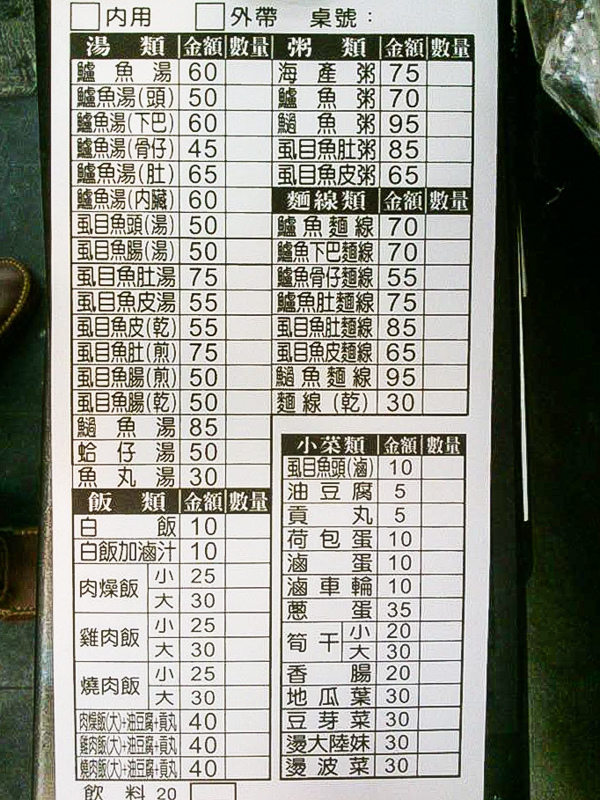 □內用 □外帶 桌號：
湯類 金額 數量
鱸魚湯 60
鱸魚湯(頭) 50
鱸魚湯(下巴) 60
鱸魚湯(骨仔) 45
鱸魚湯(肚) 65
鱸魚湯(內臟) 60
虱目魚頭(湯) 50
虱目魚腸(湯) 50
虱目魚肚湯 75
虱目魚皮湯 55
虱目魚皮(乾) 55
虱目魚肚(煎) 75
虱目魚腸(煎) 50
虱目魚腸(乾) 50
魶魚湯 85
蛤仔湯 50
魚丸湯 30
飯類 金額 數量
白飯 10
白飯加滷汁 10
肉燥飯 小 25
大 30
雞肉飯 小 25
大 30
燒肉飯 小 25
大 30
肉燥飯(大)+油豆腐+貢丸 40
雞肉飯(大)+油豆腐+貢丸 40
燒肉飯(大)+油豆腐+貢丸 40
飲料 20
粥類 金額 數量
海產粥 75
鱸魚粥 70
魶魚粥 95
虱目魚肚粥 85
虱目魚皮粥 65
麵線類 金額 數量
鱸魚麵線 70
鱸魚下巴麵線 70
鱸魚骨仔麵線 55
鱸魚肚麵線 75
虱目魚肚麵線 85
虱目魚皮麵線 65
魶魚麵線 95
麵線(乾) 30
小菜類 金額 數量
虱目魚頭(滷) 10
油豆腐 5
貢丸 5
荷包蛋 10
滷蛋 10
滷車輪 10
蔥蛋 35
筍干 小 20
大 30
香腸 20
地瓜葉 30
豆芽菜 30
燙大陸妹 30
燙波菜 30